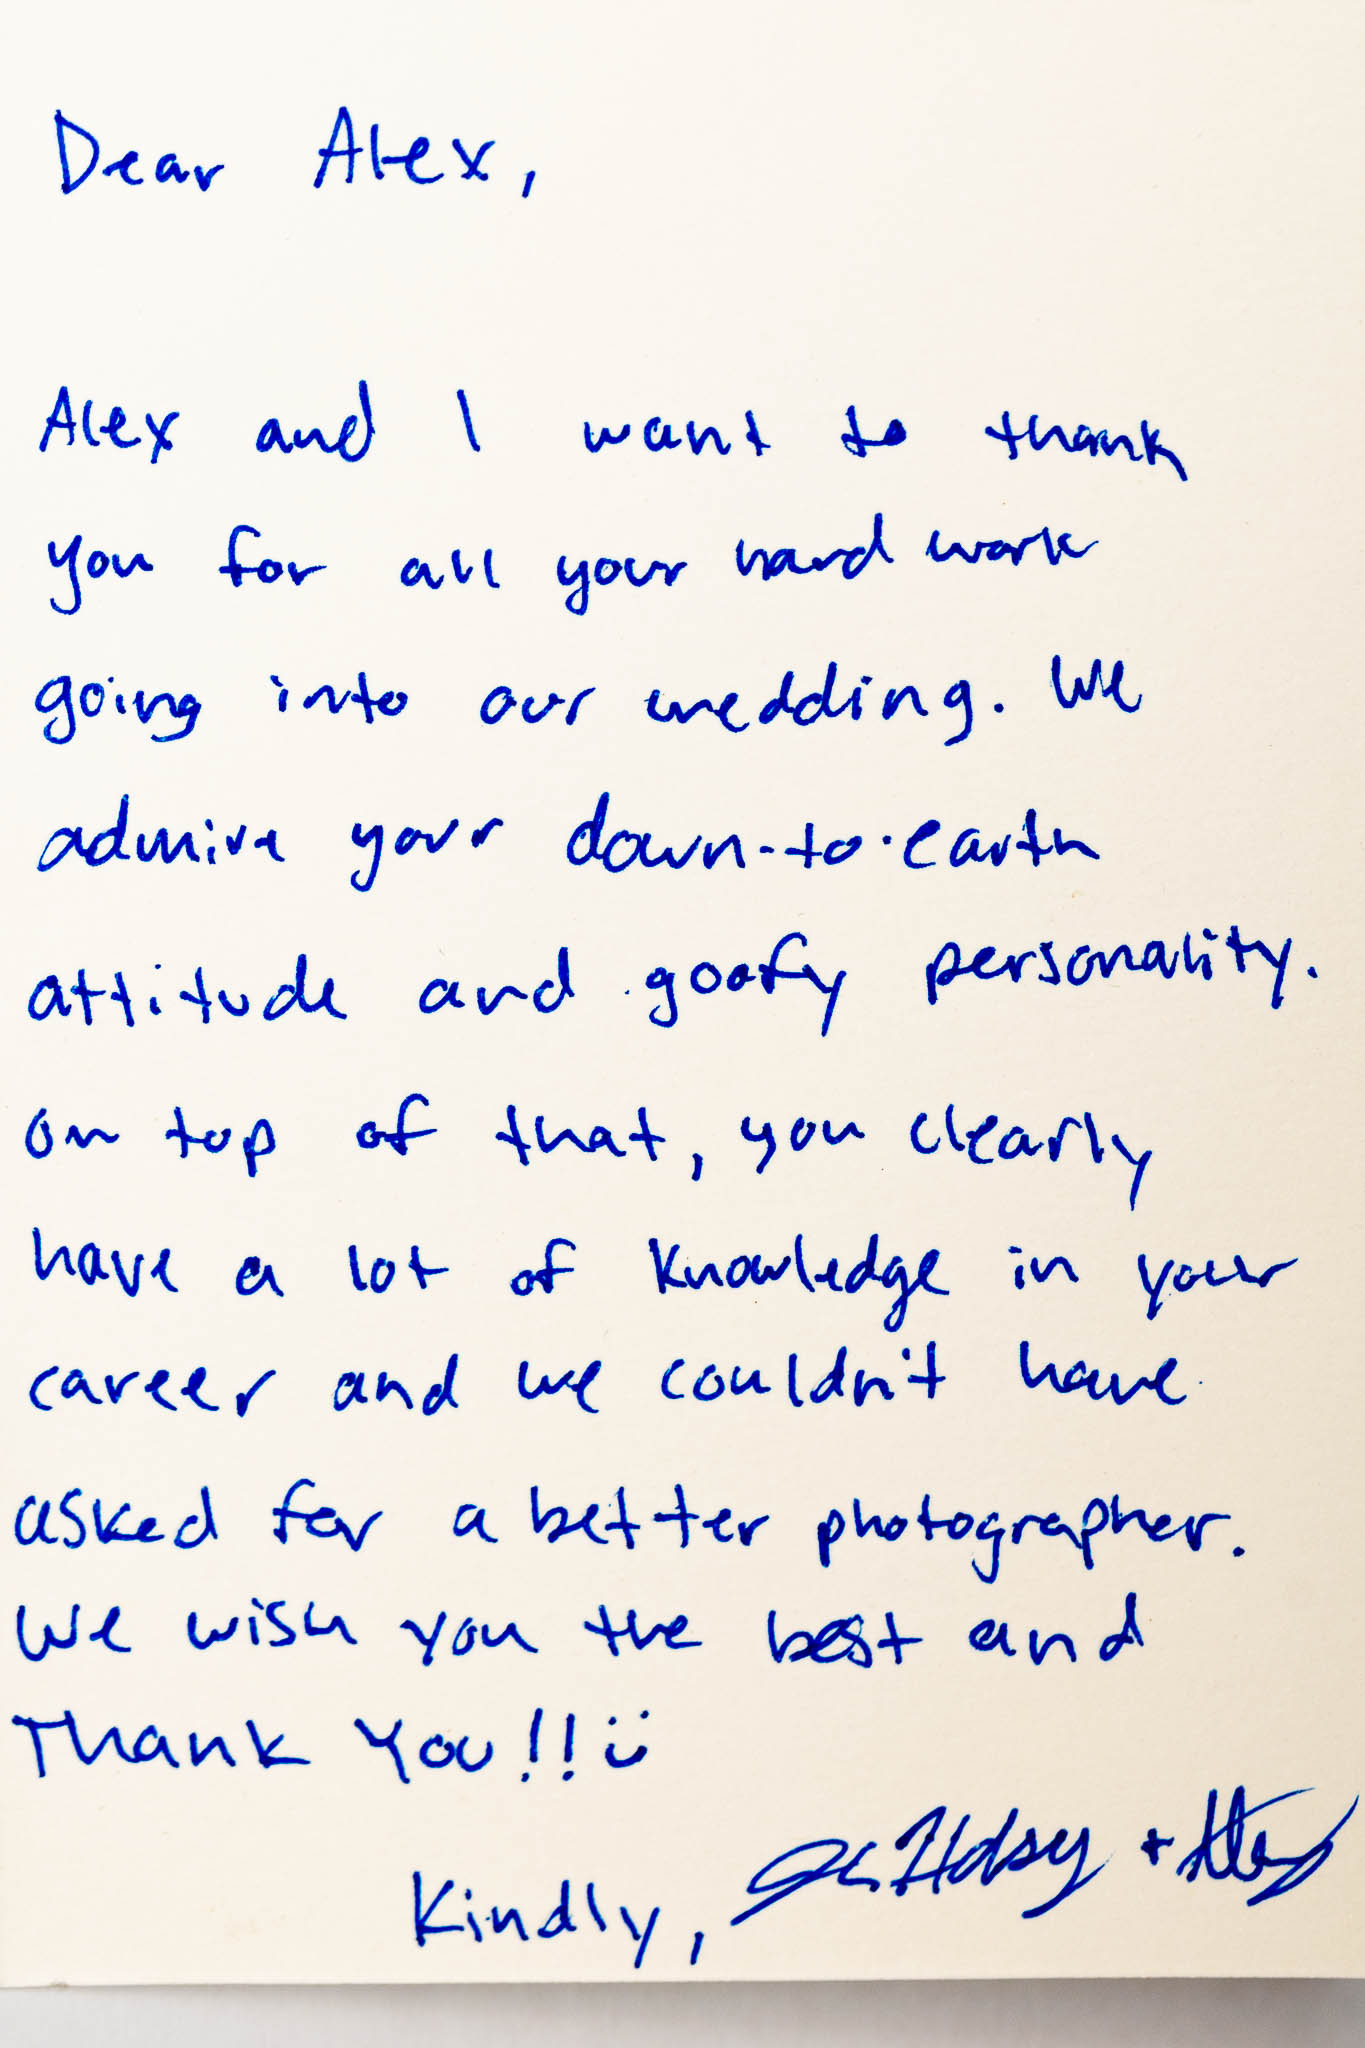 Dear Alex,
Alex and I want to thank
you for all your hard work
going into our wedding. We
admire your down-to-earth
attitude and goofy personality.
On top of that, you clearly
have a lot of knowledge in your
career and we couldn't have
asked for a better photographer.
We wish you the best and
Thank You!! :)
Kindly, + Alex